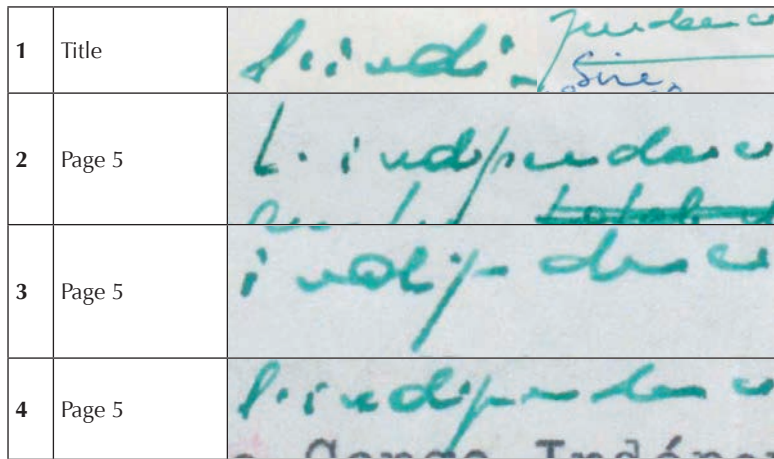 1 Title l'indé-
pendance
Sire
2 Page 5 L'indépendance
3 Page 5 indépendance
4 Page 5 l'indépendance
Congo Indépen